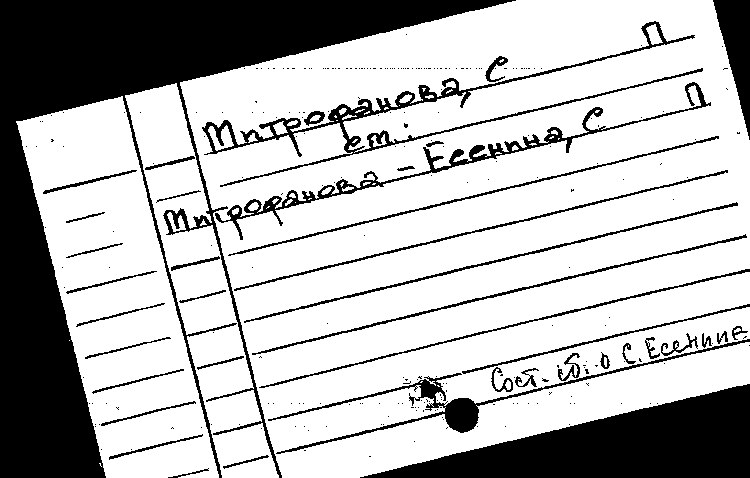 П
Митрофанова, С
см.:
П
Митрофанова - Есенина, С
Сост. сб. о С. Есенине